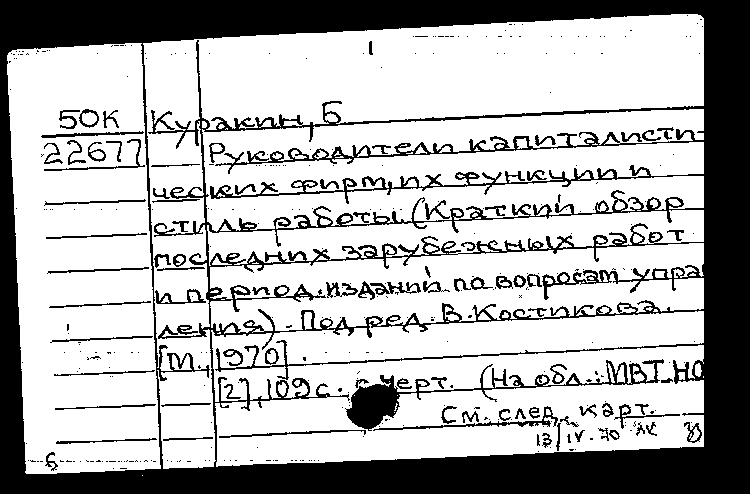 50К Куракин, Б
22677 Руководители капиталисти-
ческих фирм, их функции и
стиль работы. (Краткий обзор
последних зарубежных работ
и период. изданий по вопросам упра
ления). Под ред. В. Костикова.
[М., 1970].
[2], 109 с. с черт. (На обл.: МВТ. НО
См. след. карт.
13/IV-70
6